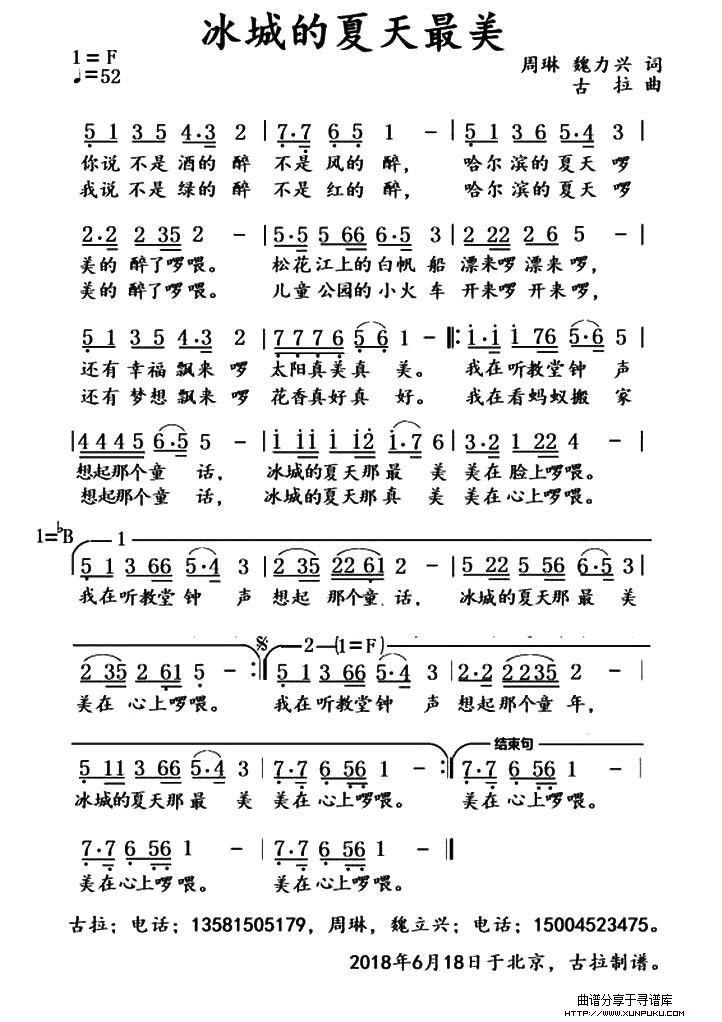 冰城的夏天最美
1=F
♩=52
周琳 魏力兴 词
古 拉 曲
5 1 3 5 4·3 2 | 7·7 6 5 1 - | 5 1 3 6 5·4 3 |
你说 不是 酒的 醉 不是 风的 醉, 哈尔 滨的 夏天 啰
我说 不是 绿的 醉 不是 红的 醉, 哈尔 滨的 夏天 啰
2·2 2 35 2 - | 5·5 5 66 6·5 3 | 2 22 2 6 5 - |
美的 醉了啰喂。 松花 江上的 白帆 船 漂来啰 漂来 啰,
美的 醉了啰喂。 儿童 公园的 小火 车 开来啰 开来 啰,
5 1 3 5 4·3 2 | 7 7 7 6 5 6 1 - ‖: i·i i 76 5·6 5 |
还有 幸福 飘来 啰 太阳真美真 美。 我在 听教堂 钟 声
还有 梦想 飘来 啰 花香真好真 好。 我在 看蚂蚁 搬 家
| 4 4 4 5 6·5 5 - | i ii i i2 i·7 6 | 3·2 1 22 4 - |
想起那个童 话, 冰城的夏天那 最 美 美在 脸上啰喂。
想起那个童 话, 冰城的夏天那 真 美 美在 心上啰喂。
1=♭B 1
5 1 3 66 5·4 3 | 2 35 22 61 2 - | 5 22 5 56 6·5 3 |
我在 听教堂 钟 声 想起 那个童 话, 冰城的夏天那 最 美
𝄋 2 (1=F)
2 35 2 61 5 - :‖ 5 1 3 66 5·4 3 | 2·2 2235 2 - |
美在 心上啰喂。 我在 听教堂钟 声 想起 那个童 年,
结束句
5 11 3 66 5·4 3 | 7·7 6 56 1 - :‖ 7·7 6 56 1 - |
冰城的夏天那 最 美 美在 心上啰喂。 美在 心上啰喂。
7·7 6 56 1 - | 7·7 6 56 1 - ‖
美在心上啰喂。 美在心上啰喂。
古拉;电话;13581505179,周琳,魏立兴;电话;15004523475。
2018年6月18日于北京,古拉制谱。
曲谱分享于寻谱库
HTTP://WWW.XUNPUKU.COM